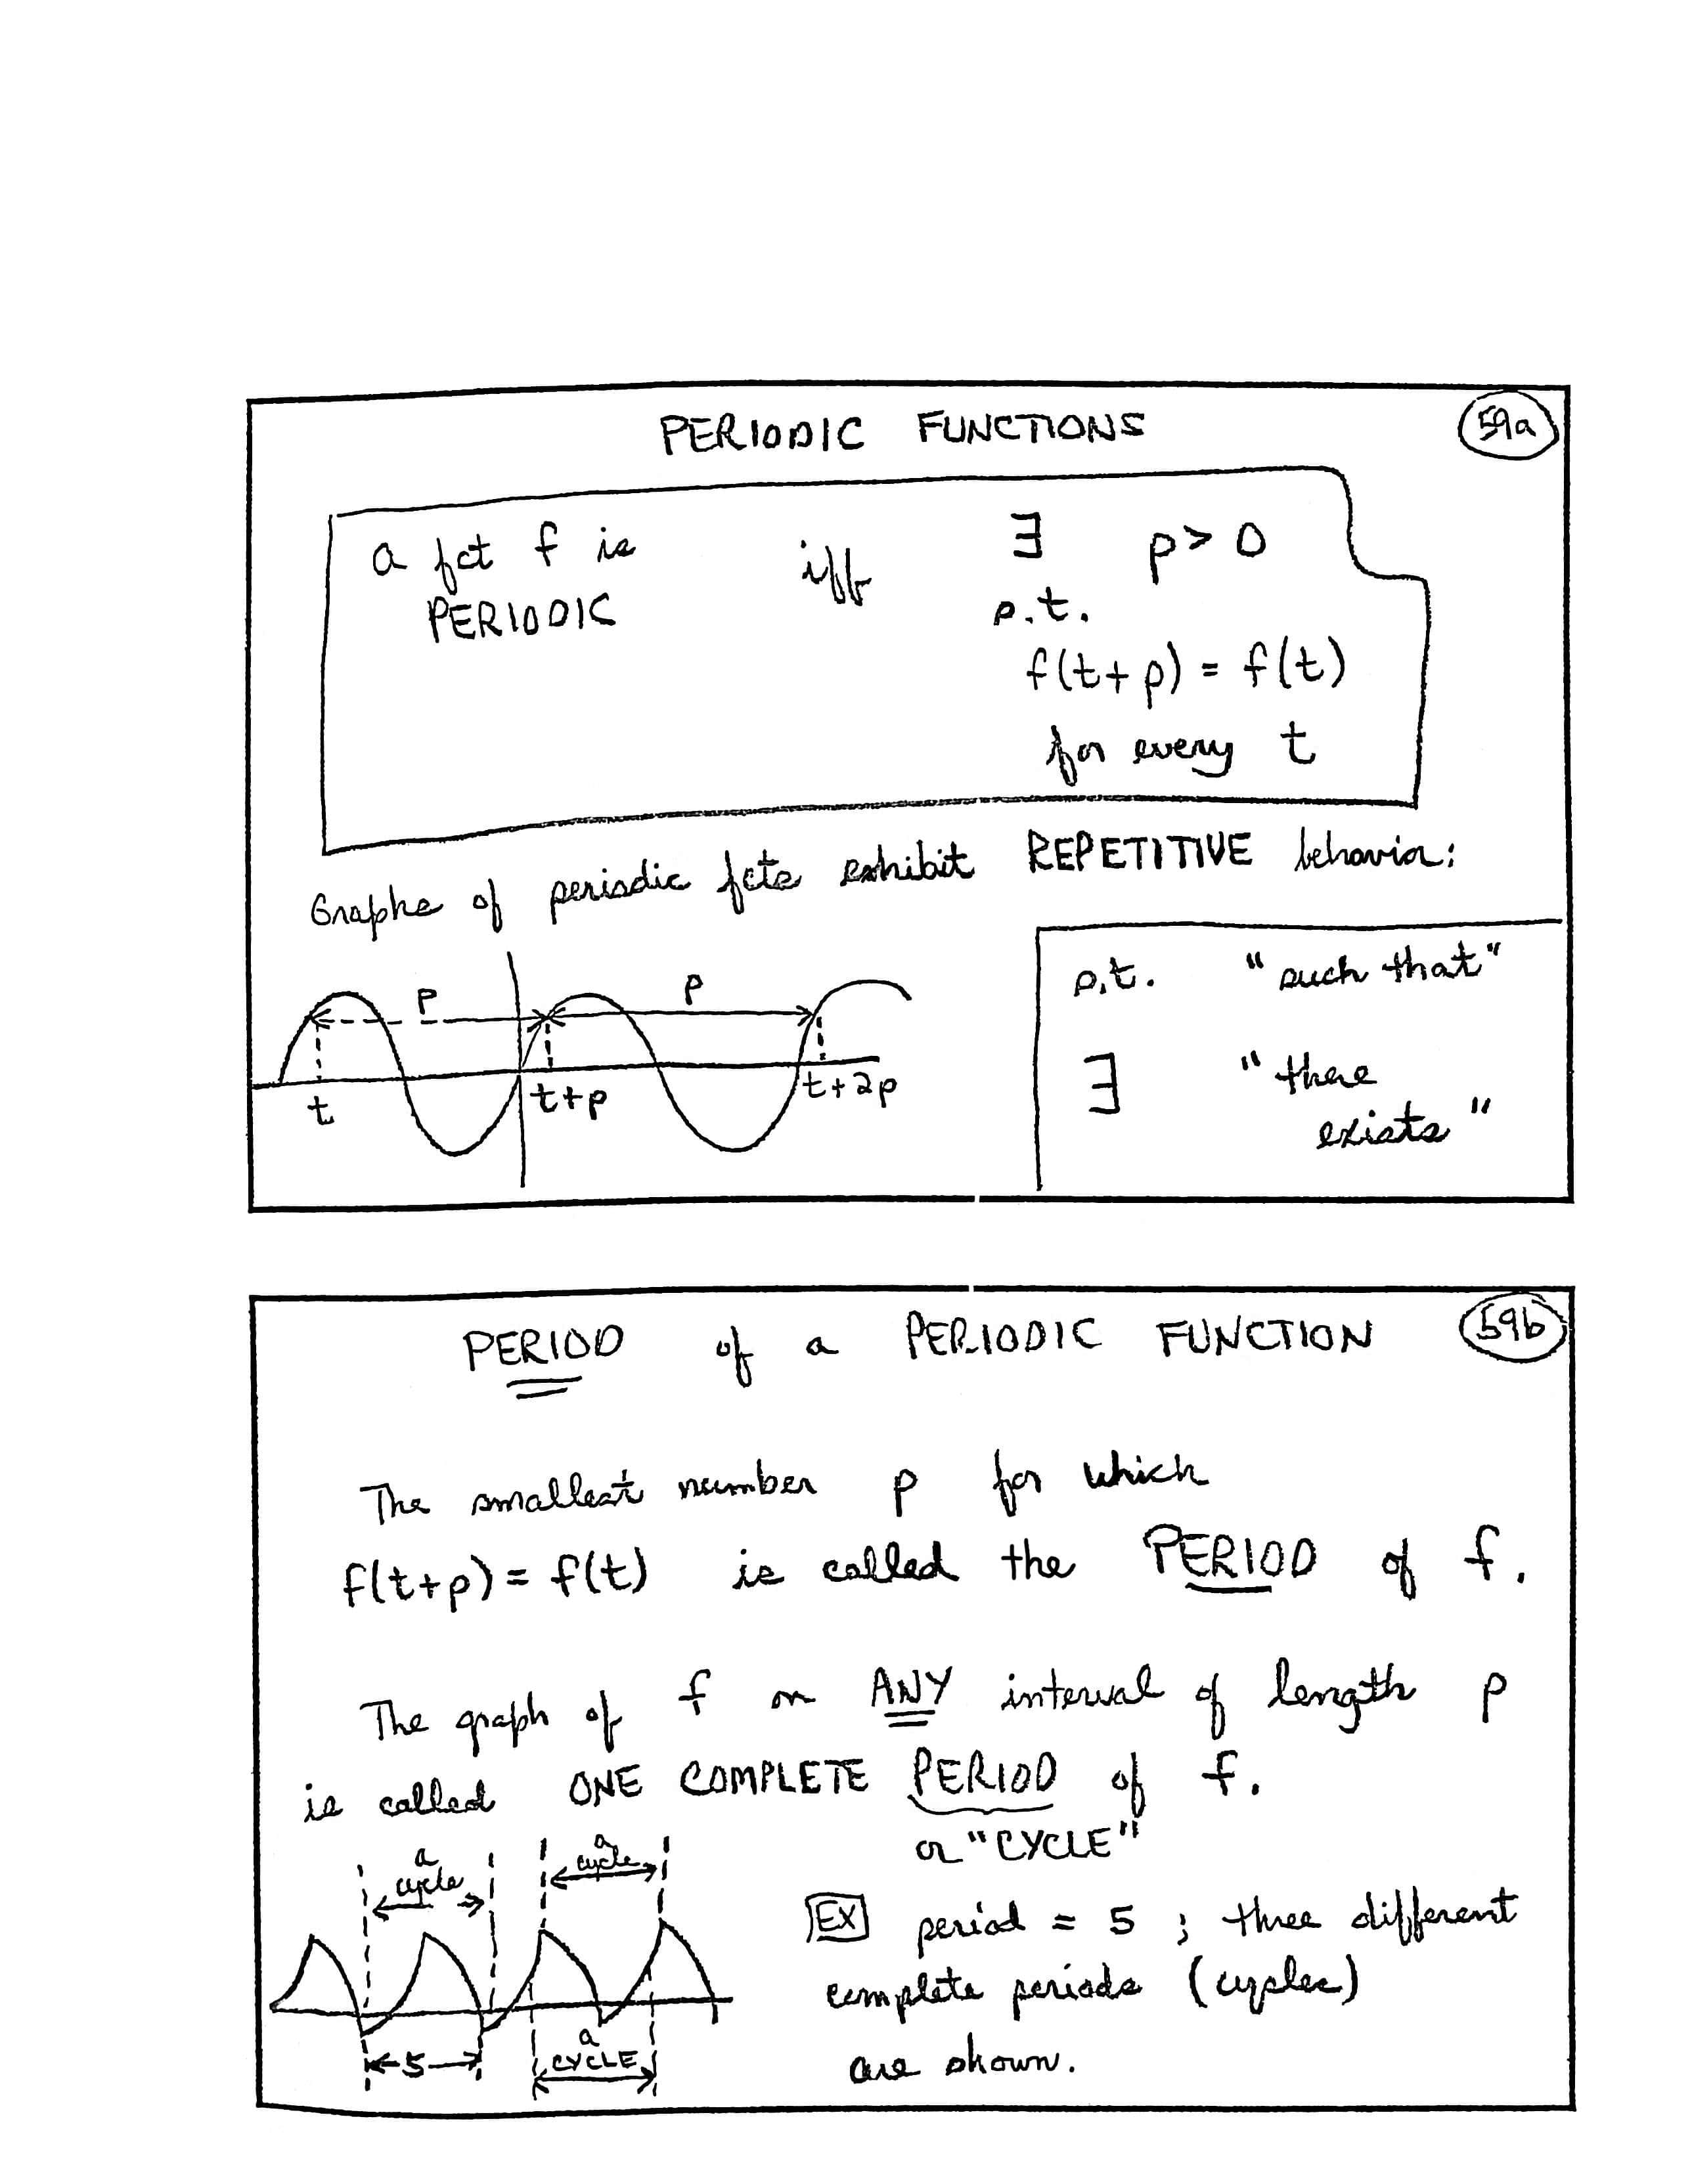 PERIODIC FUNCTIONS
59a
a fct f is iff ∃ p > 0
PERIODIC s.t.
f(t+p) = f(t)
for every t
Graphs of periodic fcts exhibit REPETITIVE behavior:
p p
t t+p t+2p
s.t. "such that"
∃ "there
exists"
PERIOD of a PERIODIC FUNCTION
59b
The smallest number p for which
f(t+p) = f(t) is called the PERIOD of f.
The graph of f on ANY interval of length p
is called ONE COMPLETE PERIOD of f.
or "CYCLE"
a
cycle
a
cycle
5
a
CYCLE
EX period = 5 ; three different
complete periods (cycles)
are shown.